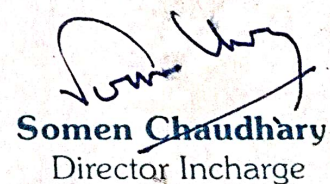 Somen Chaudhary
Director Incharge